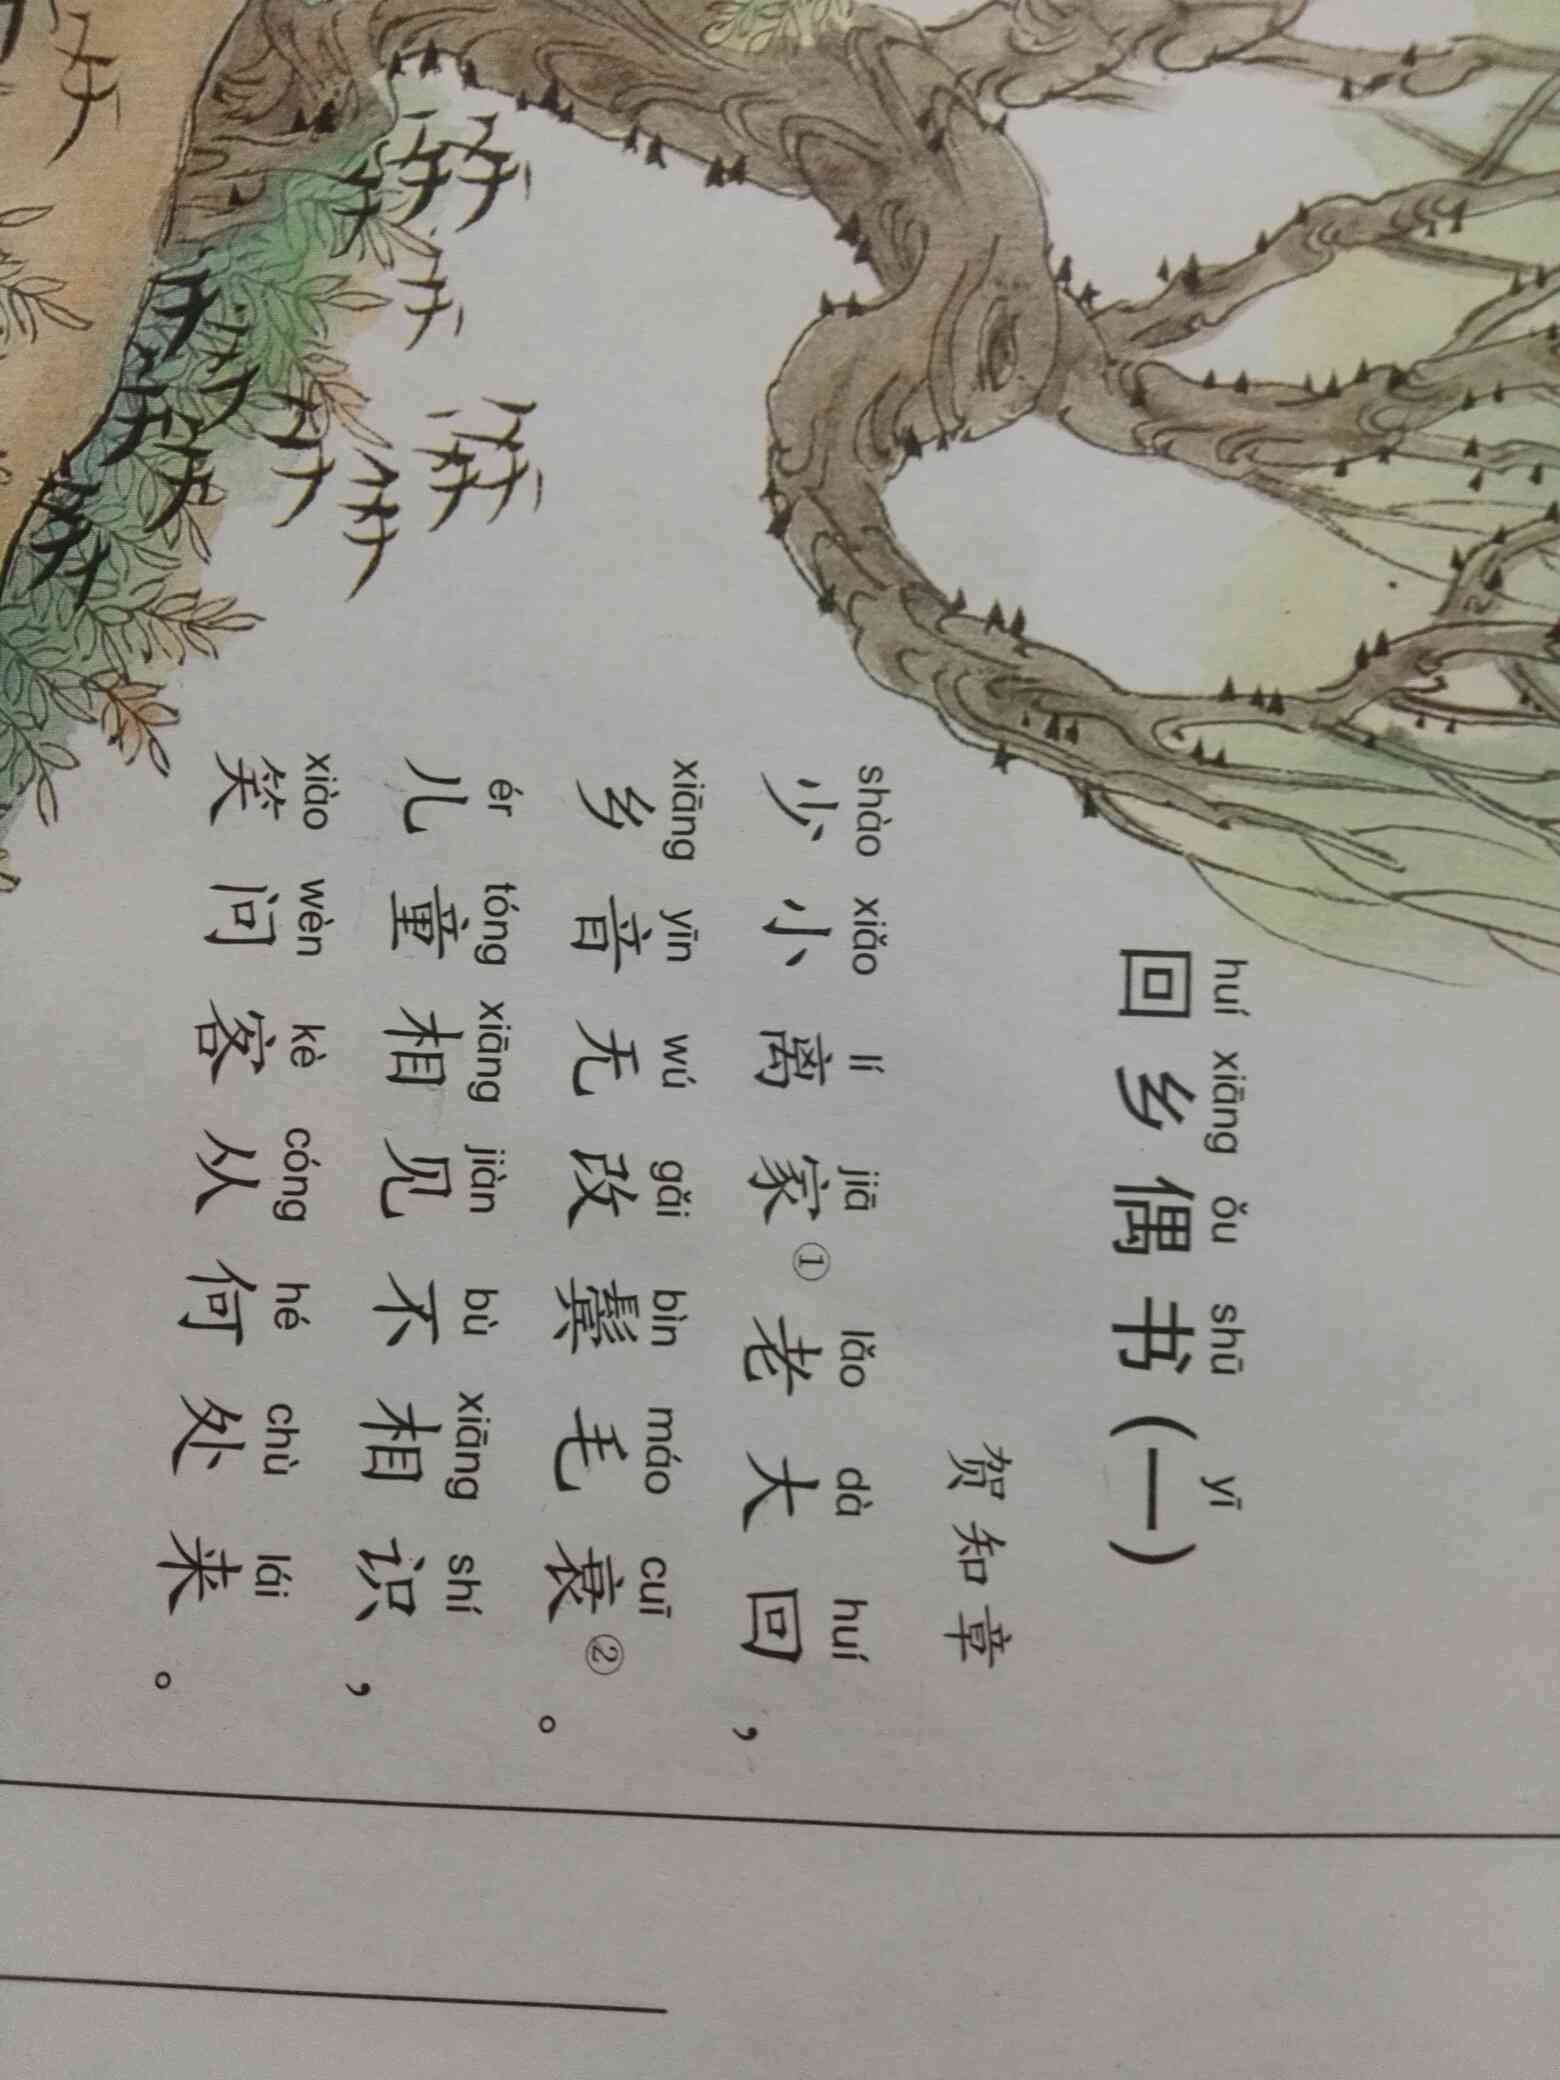 huí xiāng ǒu shū yī
回乡偶书（一）
贺知章
shào xiǎo lí jiā lǎo dà huí
少小离家①老大回，
xiāng yīn wú gǎi bìn máo cuī
乡音无改鬓毛衰②。
ér tóng xiāng jiàn bù xiāng shí
儿童相见不相识，
xiào wèn kè cóng hé chù lái
笑问客从何处来。